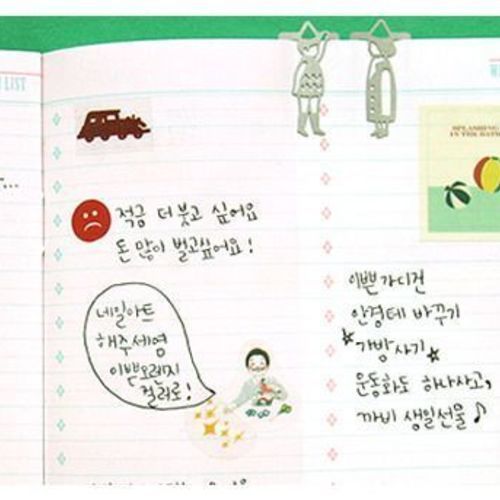 LIST
적금 더 붓고 싶어요
돈 많이 벌고싶어요!
네일아트
해주세영
이쁜오렌지
컬러로!
SPLASHING
IN THE BATH
이쁜가디건
안경테 바꾸기
가방사기
운동화도 하나사고,
까비 생일선물♪